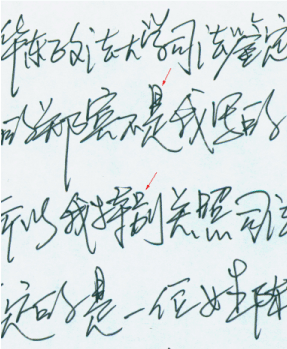 华东政法大学司法鉴定
的郑宏不是我写的
所以我特别关照司法
定的是一位姓陈